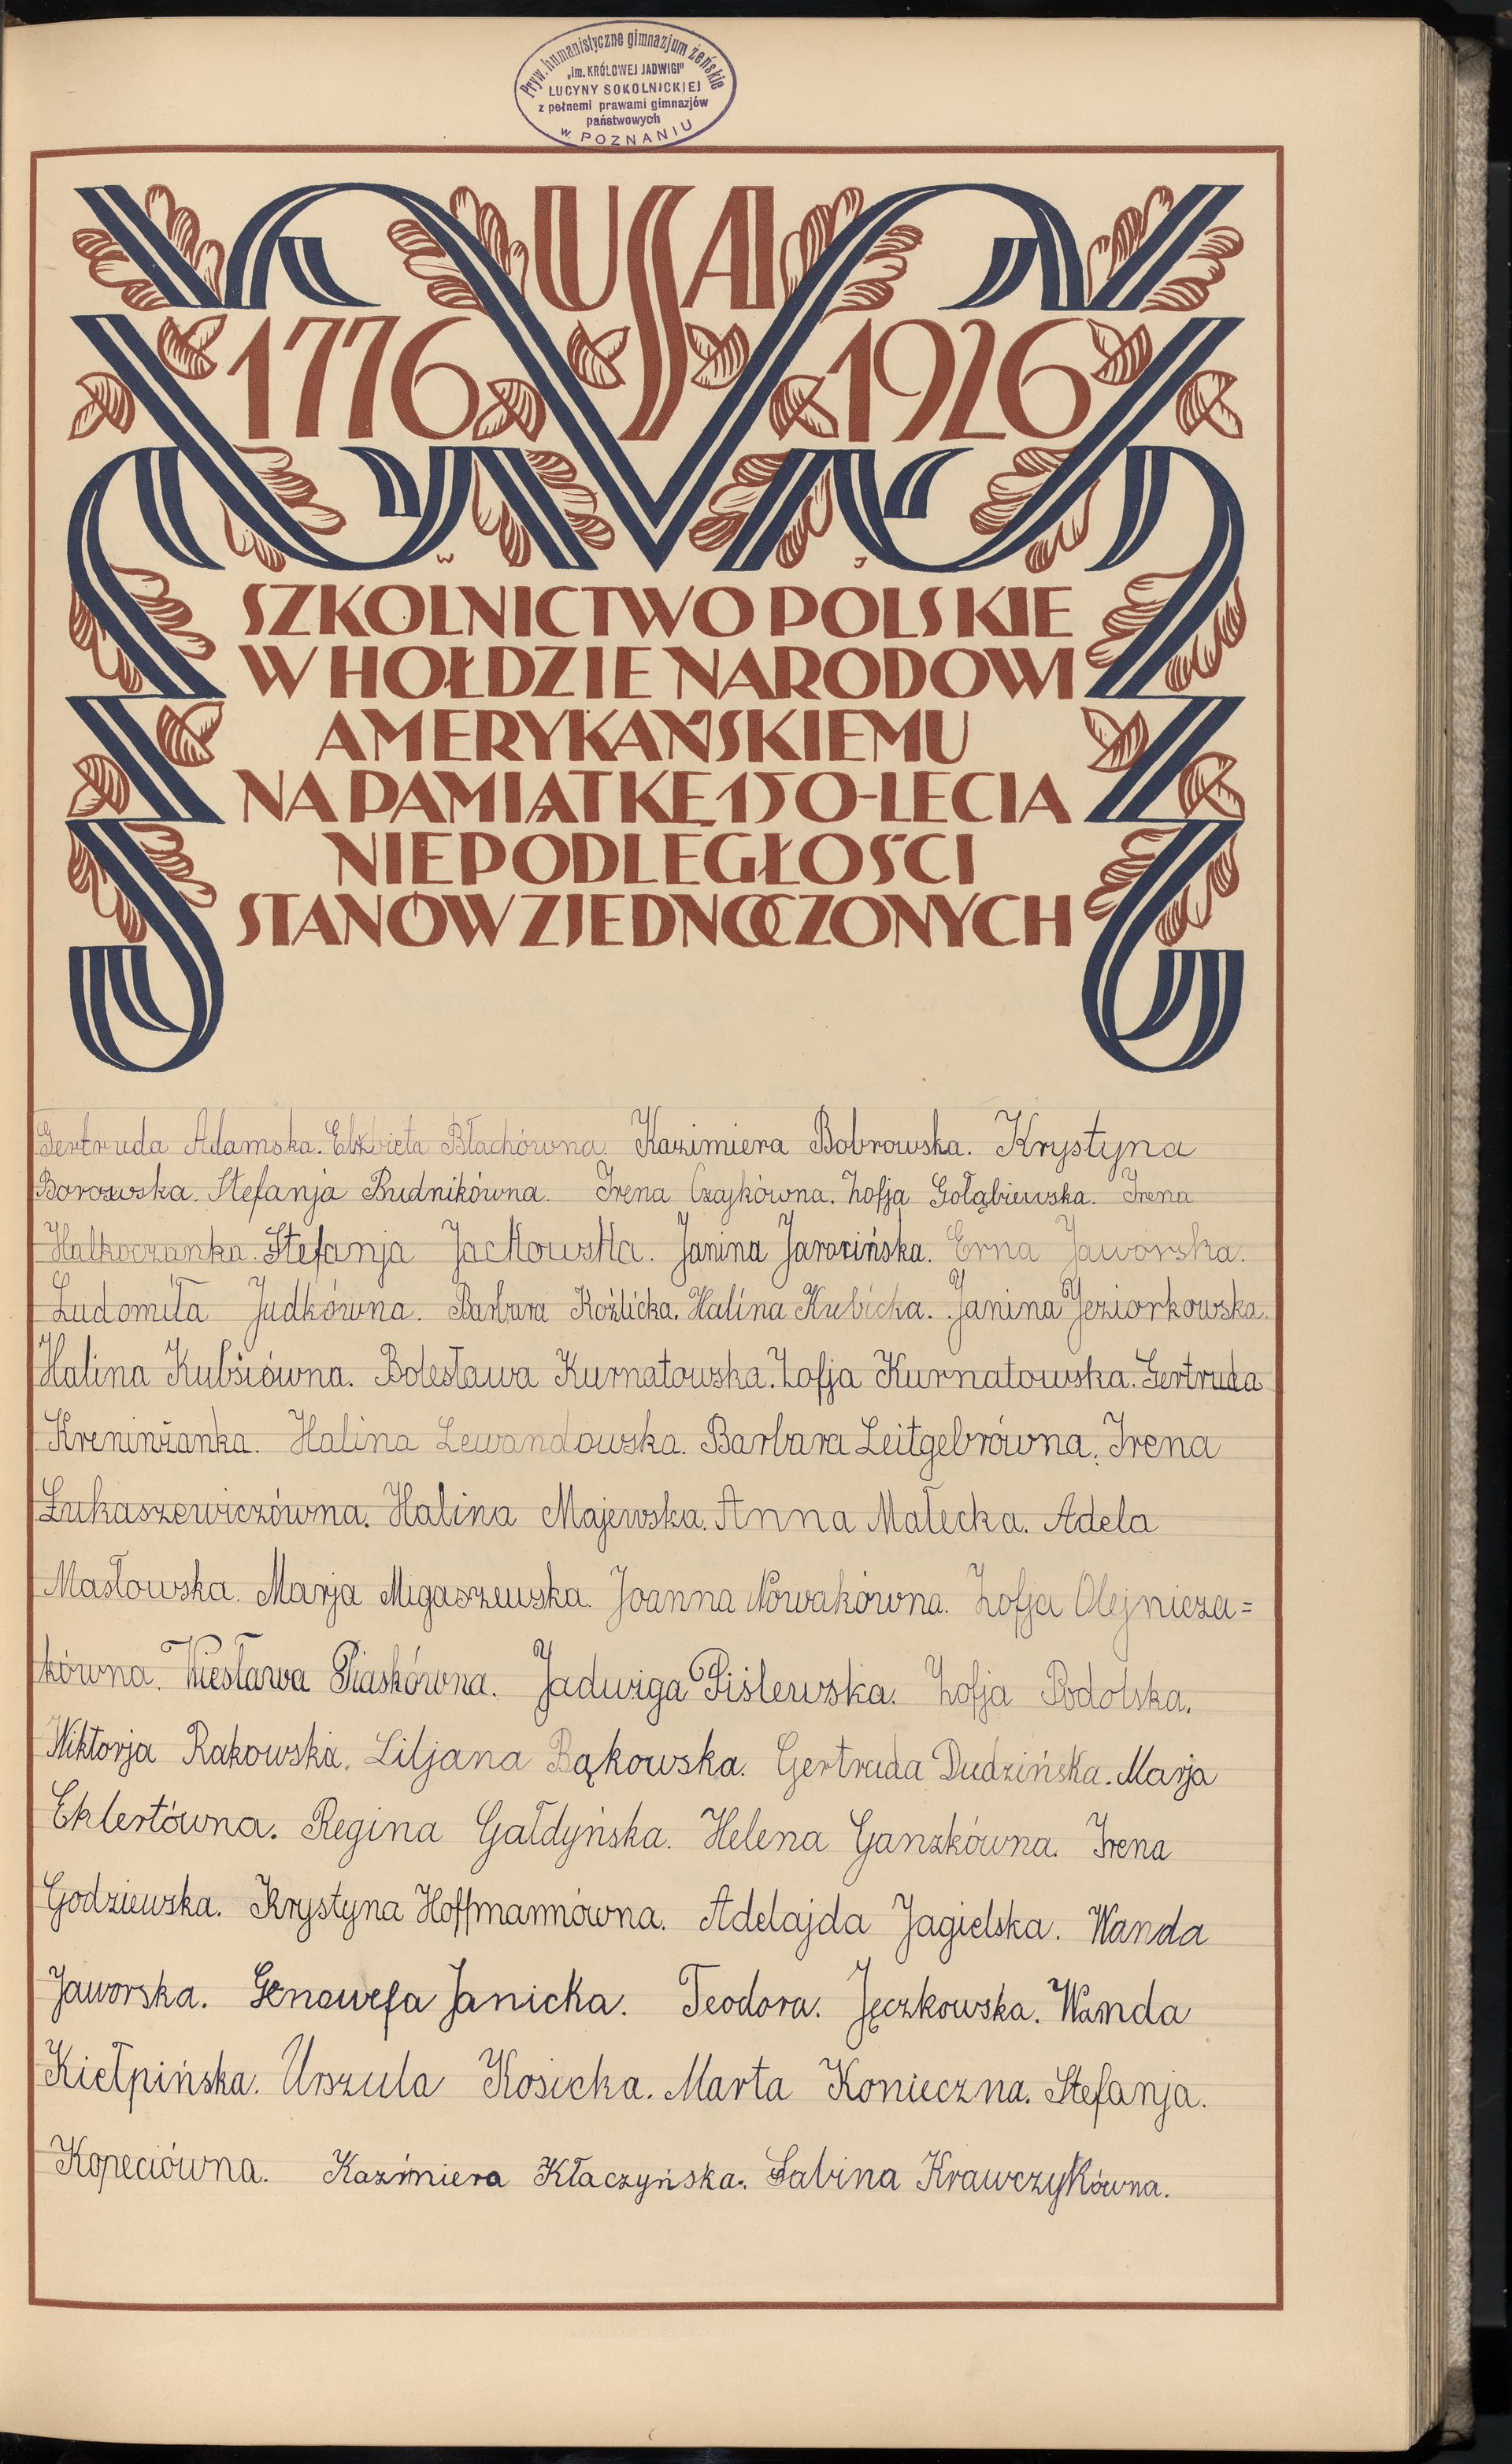 Pryw. humanistyczne gimnazjum żeńskie
„im. KRÓLOWEJ JADWIGI"
LUCYNY SOKOLNICKIEJ
z pełnemi prawami gimnazjów
państwowych
w. POZNANIU
USA
1776 1926
W J
SZKOLNICTWO POLSKIE
W HOŁDZIE NARODOWI
AMERYKAŃSKIEMU
NA PAMIĄTKĘ 150-LECIA
NIEPODLEGŁOŚCI
STANÓW ZJEDNOCZONYCH
Gertruda Adamska. Elżbieta Błachówna. Kazimiera Bobrowska. Krystyna
Borowska. Stefanja Budnikówna. Irena Czajkówna. Zofja Gołąbiewska. Irena
Halkoczanka. Stefanja Jackowska. Janina Jarocińska. Erna Jaworska.
Ludomiła Judkówna. Barbara Koźlicka. Halina Kubicka. Janina Jeziorkowska.
Halina Kubsiówna. Bolesława Kurnatowska. Zofja Kurnatowska. Gertruda
Kreninżanka. Halina Lewandowska. Barbara Leitgebrówna. Irena
Łukaszewiczówna. Halina Majewska. Anna Małecka. Adela
Masłowska. Marja Migaszewska. Joanna Nowakówna. Zofja Olejnicza=
kówna. Wiesława Piaskówna. Jadwiga Piślewska. Zofja Podolska.
Wiktorja Rakowska. Liljana Bąkowska. Gertruda Dudzińska. Marja
Eklertówna. Regina Gałdyńska. Helena Ganzkówna. Irena
Godziewska. Krystyna Hoffmannówna. Adelajda Jagielska. Wanda
Jaworska. Genowefa Janicka. Teodora. Jęczkowska. Wanda
Kiełpińska. Urszula Kosicka. Marta Konieczna. Stefanja.
Kopeciówna. Kaźmiera Kłaczyńska. Sabina Krawczykówna.